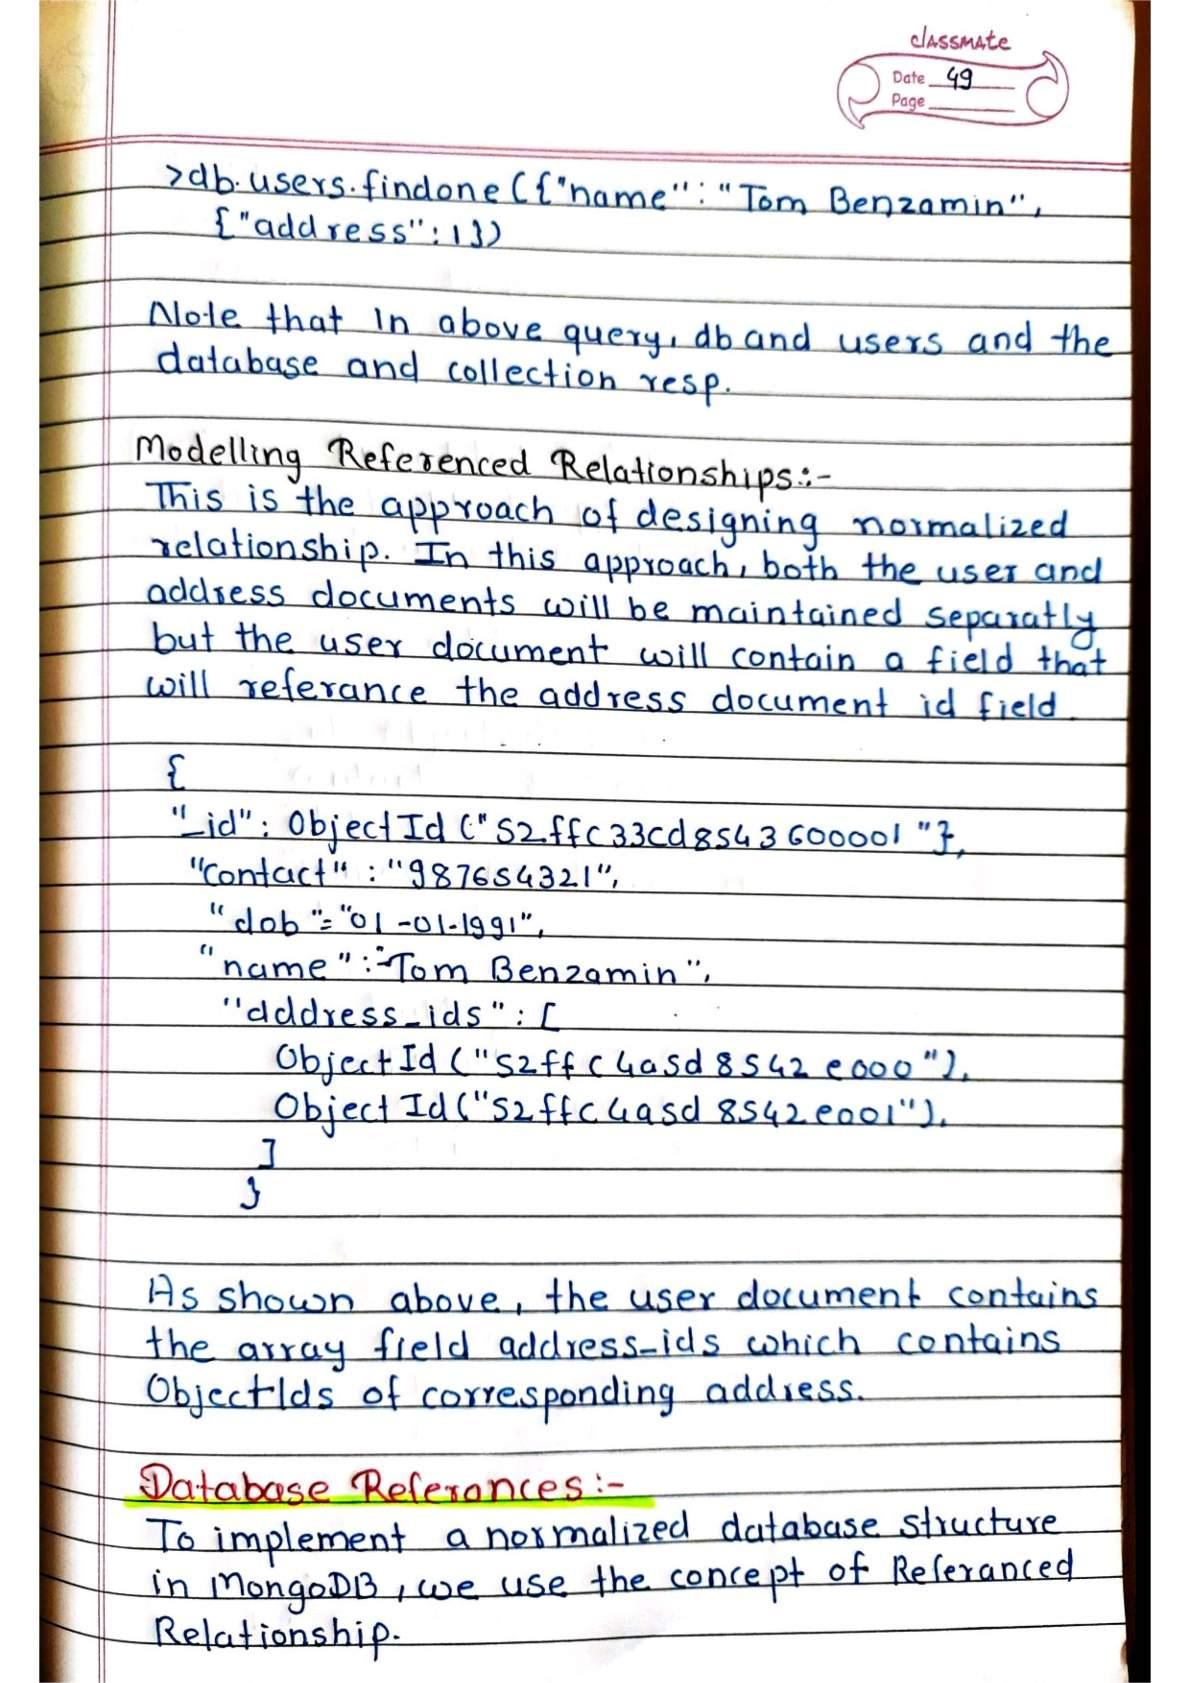 classmate
Date 49
Page
>db.users.findone({"name":"Tom Benzamin",
{"address":1})
Note that In above query, db and users and the
database and collection resp.
Modelling Referenced Relationships:-
This is the approach of designing normalized
relationship. In this approach, both the user and
address documents will be maintained separatly
but the user document will contain a field that
will referance the address document id field.
{
"_id": ObjectId ("52ffc33cd8543600001"},
"contact" : "987654321",
"dob"="01-01-1991",
"name":"Tom Benzamin",
"address_ids": [
ObjectId ("52ffc4a5d8542e000"),
ObjectId ("52ffc4a5d8542e001"),
]
}
As shown above, the user document contains
the array field address_ids which contains
ObjectIds of corresponding address.
Database Referances:-
To implement a normalized database structure
in MongoDB, we use the concept of Referanced
Relationship.